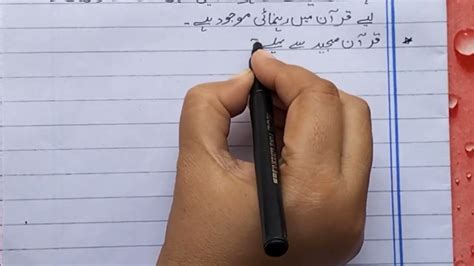 لیے قرآن میں رہنمائی موجود ہے۔
* قرآن مجید سے پہلے